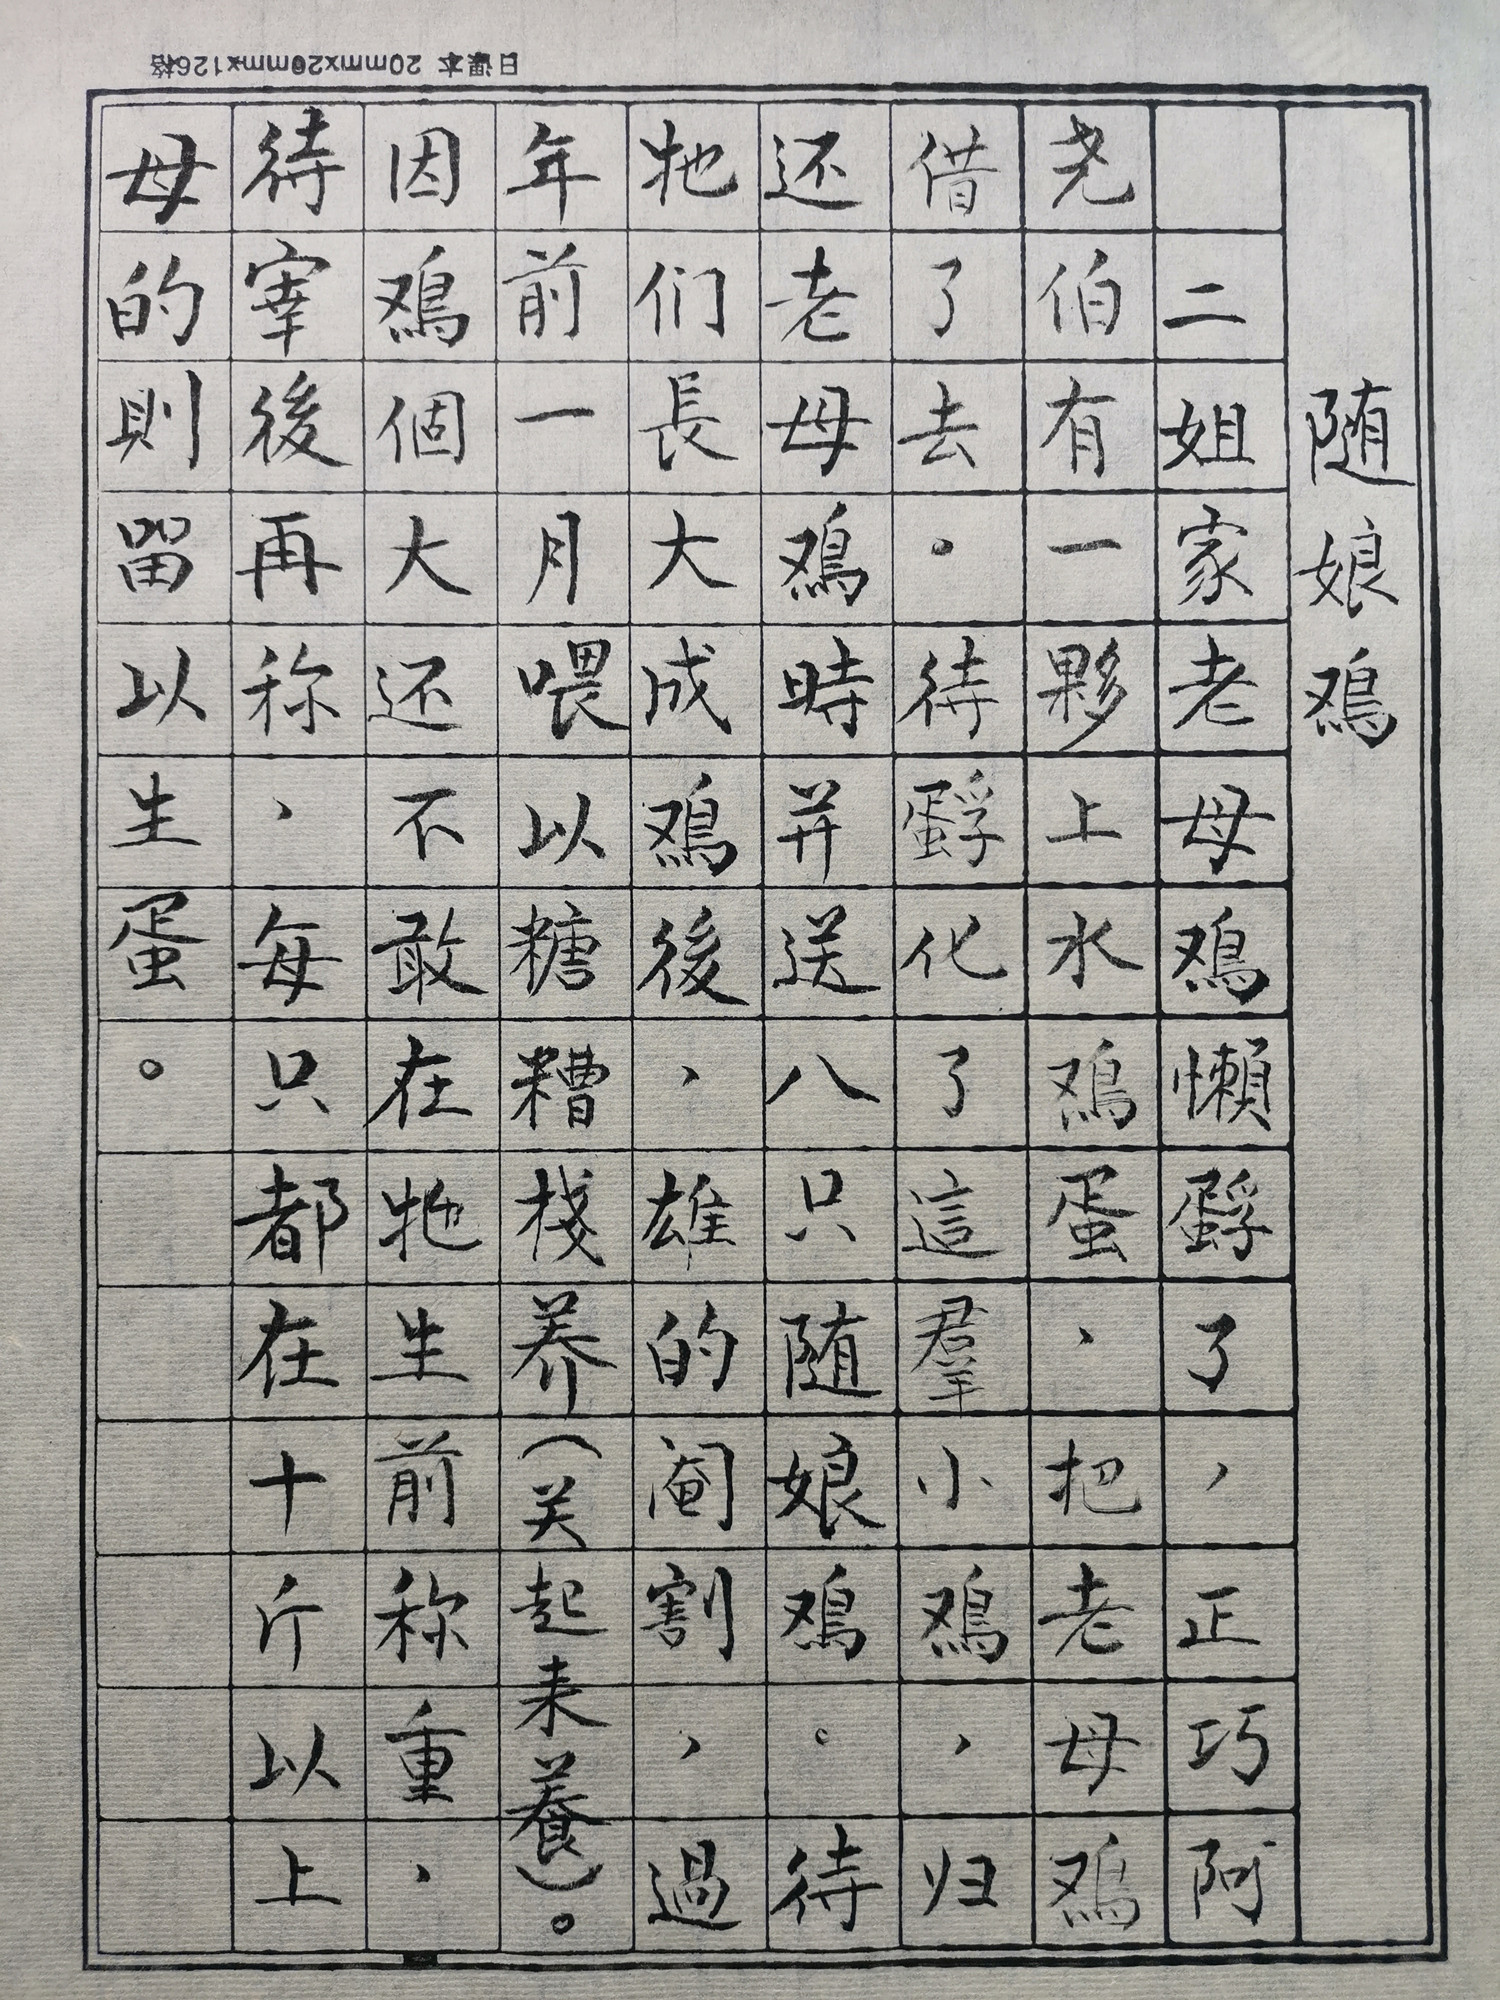 日課本 20mmx20mmx126格
随娘鸡
二姐家老母鸡懒孵了，正巧阿
尧伯有一夥上水鸡蛋，把老母鸡
借了去。待孵化了這羣小鸡，归
还老母鸡時并送八只随娘鸡。待
牠们長大成鸡後，雄的阉割，過
年前一月喂以糖糟棧养（关起来養）。
因鸡個大还不敢在牠生前称重，
待宰後再称，每只都在十斤以上
母的則留以生蛋。